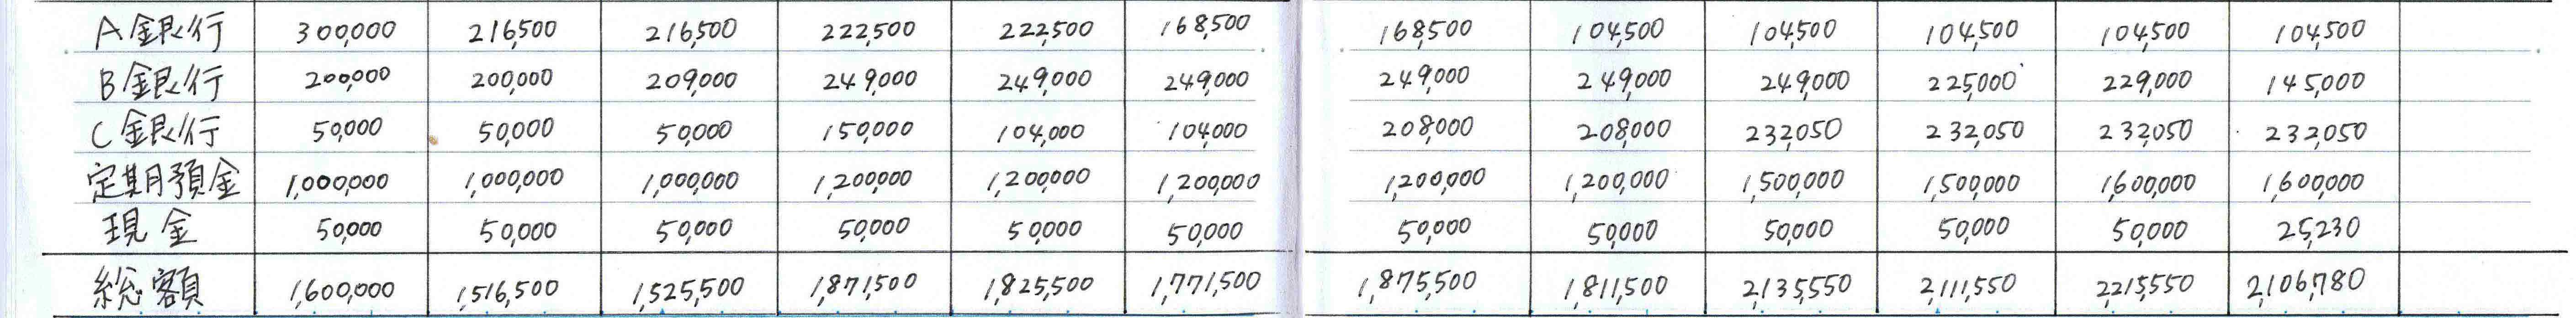 A銀行 300,000 216,500 216,500 222,500 222,500 168,500 168,500 104,500 104,500 104,500 104,500 104,500
B銀行 200,000 200,000 209,000 249,000 249,000 249,000 249,000 249,000 249,000 225,000 229,000 145,000
C銀行 50,000 50,000 50,000 150,000 104,000 104,000 208,000 208,000 232,050 232,050 232,050 232,050
定期預金 1,000,000 1,000,000 1,000,000 1,200,000 1,200,000 1,200,000 1,200,000 1,200,000 1,500,000 1,500,000 1,600,000 1,600,000
現金 50,000 50,000 50,000 50,000 50,000 50,000 50,000 50,000 50,000 50,000 50,000 25,230
総額 1,600,000 1,516,500 1,525,500 1,871,500 1,825,500 1,771,500 1,875,500 1,811,500 2,135,550 2,111,550 2,215,550 2,106,780